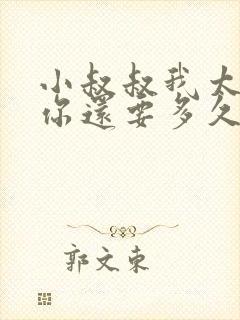 小叔叔我太
你還要多久
郭文東